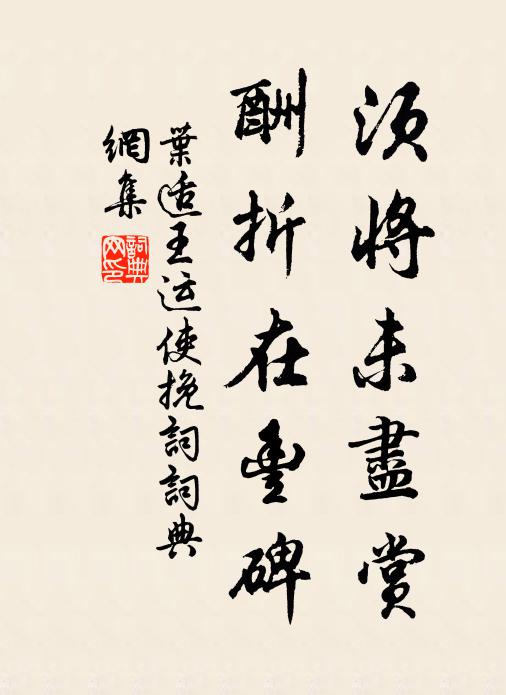 須將未盡賞
酬折在豐碑
葉適王运使挽詞詞典
網集
詞典網印